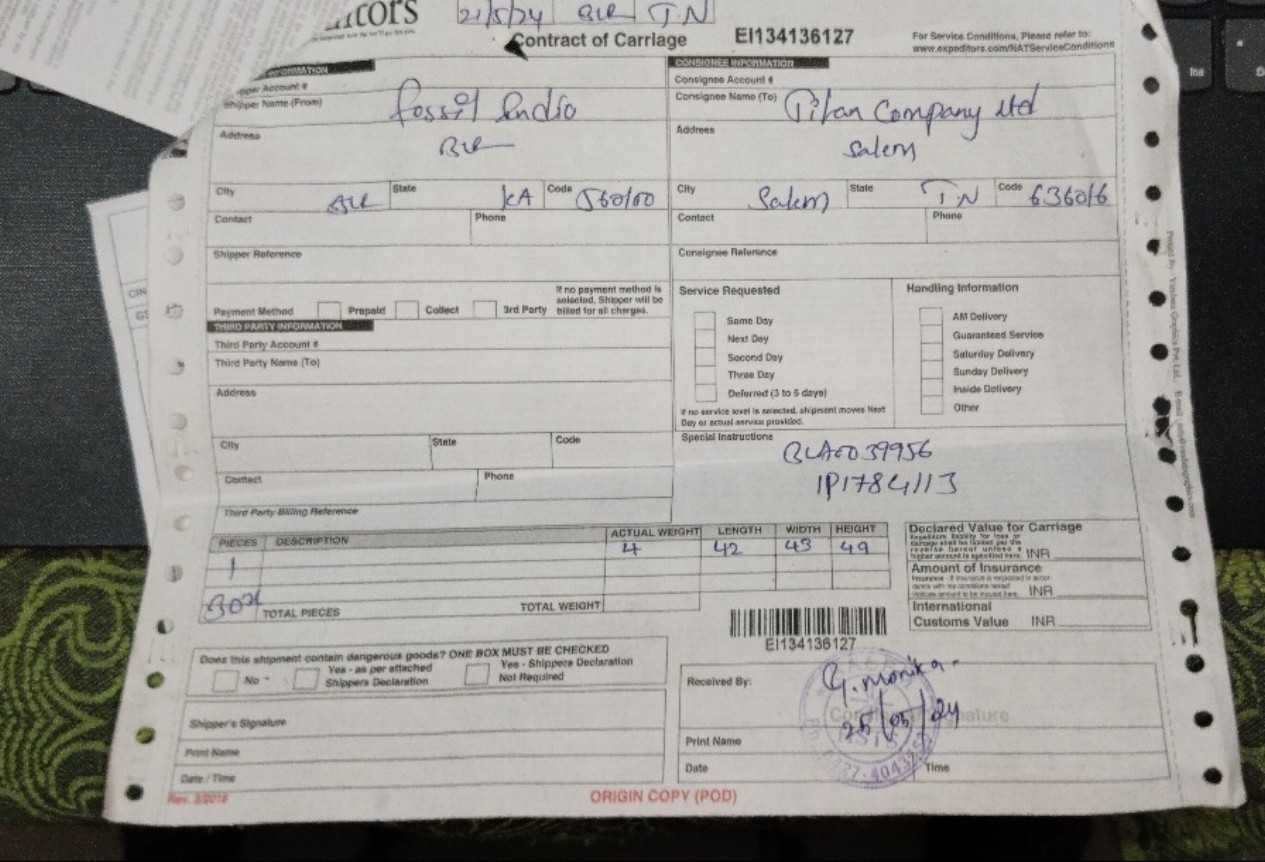 21/5/24 BLR TN
Contract of Carriage EI134136127
For Service Conditions, Please refer to:
www.expeditors.com/NATServiceConditions
CONSIGNEE INFORMATION
Consignee Account #
Shipper Name (From) Fossil India
Consignee Name (To) Titan Company Ltd
Address BLR
Address Salem
City BLR State KA Code 560100
City Salem State TN Code 636016
Contact Phone
Contact Phone
Shipper Reference
Consignee Reference
Payment Method Prepaid Collect 3rd Party
If no payment method is
selected, Shipper will be
billed for all charges.
Service Requested
Same Day
Next Day
Second Day
Three Day
Deferred (3 to 5 days)
If no service level is selected, shipment moves Next
Day or actual service provided.
Handling Information
AM Delivery
Guaranteed Service
Saturday Delivery
Sunday Delivery
Inside Delivery
Other
THIRD PARTY INFORMATION
Third Party Account #
Third Party Name (To)
Address
City State Code
Contact Phone
Third Party Billing Reference
Special Instructions
IP1784113
PIECES DESCRIPTION ACTUAL WEIGHT LENGTH WIDTH HEIGHT
1 4 42 43 49
Box TOTAL PIECES TOTAL WEIGHT
Declared Value for Carriage
INR
Amount of Insurance
INR
International
Customs Value INR
EI134136127
Does this shipment contain dangerous goods? ONE BOX MUST BE CHECKED
No
Yes - as per attached
Shippers Declaration
Yes - Shippers Declaration
Not Required
Shipper's Signature
Print Name
Date / Time
Received By: G. Monika
25/05/24
Print Name
Date Time
Rev. 3/2018
ORIGIN COPY (POD)